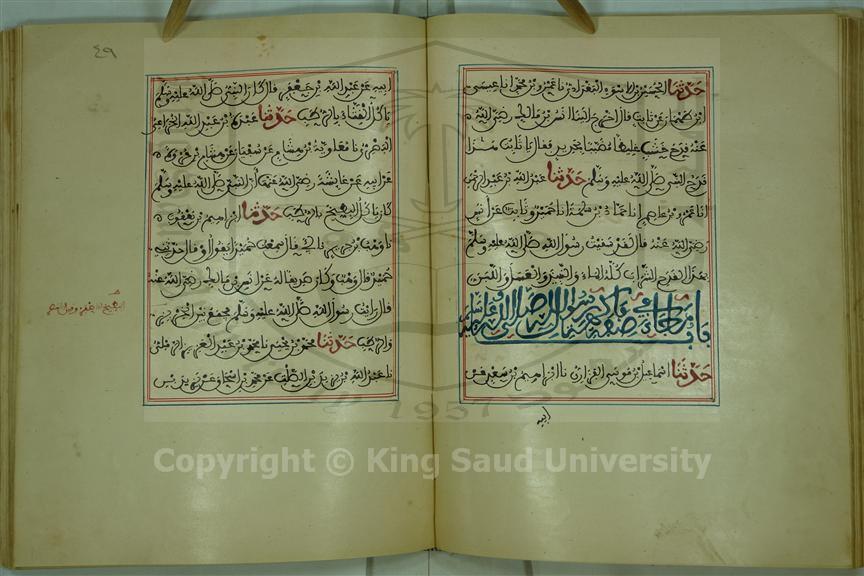 حدثنا الحسين بن الاسود البغدادي نا عمرو بن محمد انا عيسى
ابن طهمان عن ثابت قال اخرج الينا انس بن مالك رضي الله
عنه قدح خشب غليظا مضببا بحديد فقال يا ثابت هذا
قدح النبي صلى الله عليه وسلم حدثنا عبد الله بن عبد الرحمن
انا عمرو بن عاصم انا حماد بن سلمة انا حميد وثابت عن انس
رضي الله عنه قال لقد سقيت رسول الله صلى الله عليه وسلم
بهذا القدح الشراب كله الماء والنبيذ والعسل واللبن
باب ما جاء في صفة فاكهة رسول الله صلى الله عليه وسلم
حدثنا اسماعيل بن موسى الفزاري نا ابراهيم بن سعد عن
ابيه
٤٩
ابيه عن عبد الله بن جعفر قال كان النبي صلى الله عليه وسلم
ياكل القثاء بالرطب حدثنا عبدة بن عبد الله الخزاعي
البصري نا معاوية بن هشام عن سفيان عن هشام بن عروة
عن ابيه عن عائشة رضي الله عنها ان النبي صلى الله عليه وسلم
كان ياكل البطيخ بالرطب حدثنا ابراهيم بن يعقوب
نا وهب بن جرير نا ابي قال سمعت حميدا يقول او قال حدثني
حميد قال وهب وكان صديقا له عن انس بن مالك رضي الله عنه
قال رايت رسول الله صلى الله عليه وسلم يجمع بين الخربز
والرطب حدثنا محمد بن يحيى نا محمد بن عبد العزيز الرملي
نا عبد الله بن يزيد بن الصلت عن محمد بن اسحاق عن يزيد بن
1957
Copyright © King Saud University